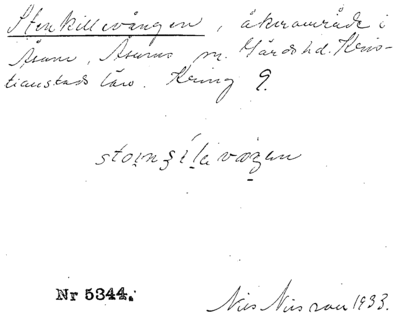 Stenkillevången, åkerområde i
Åsum, Åsums sn. Gärds hd. Kris-
tianstads län. Kring 9.
Nr 5344.
Nils Nilsson 1933.